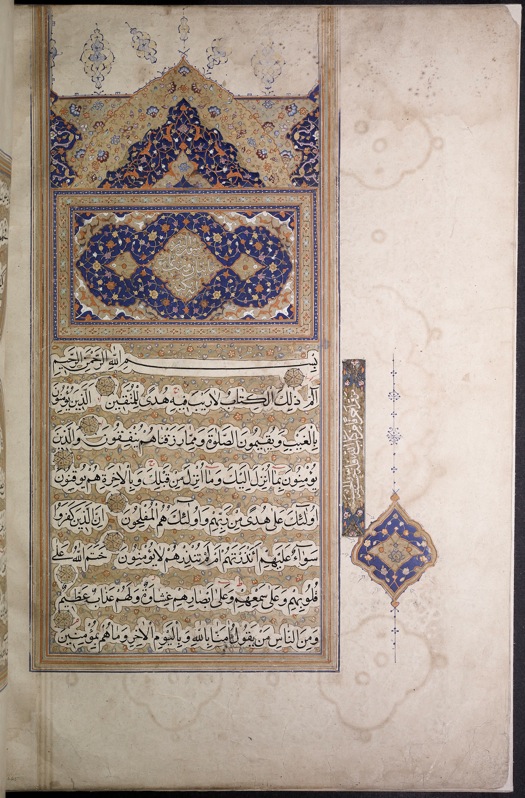 بسم الله الرحمن الرحيم
الم ذلك الكتاب لا ريب فيه هدى للمتقين الذين يؤمنون
بالغيب ويقيمون الصلوة ومما رزقناهم ينفقون والذين
يؤمنون بما انزل اليك وما انزل من قبلك وبالآخرة هم يوقنون
اولئك على هدى من ربهم واولئك هم المفلحون ان الذين كفروا
سواء عليهم ءانذرتهم ام لم تنذرهم لا يؤمنون ختم الله على
قلوبهم وعلى سمعهم وعلى ابصارهم غشاوة ولهم عذاب عظيم
ومن الناس من يقول آمنا بالله وباليوم الآخر وما هم بمؤمنين